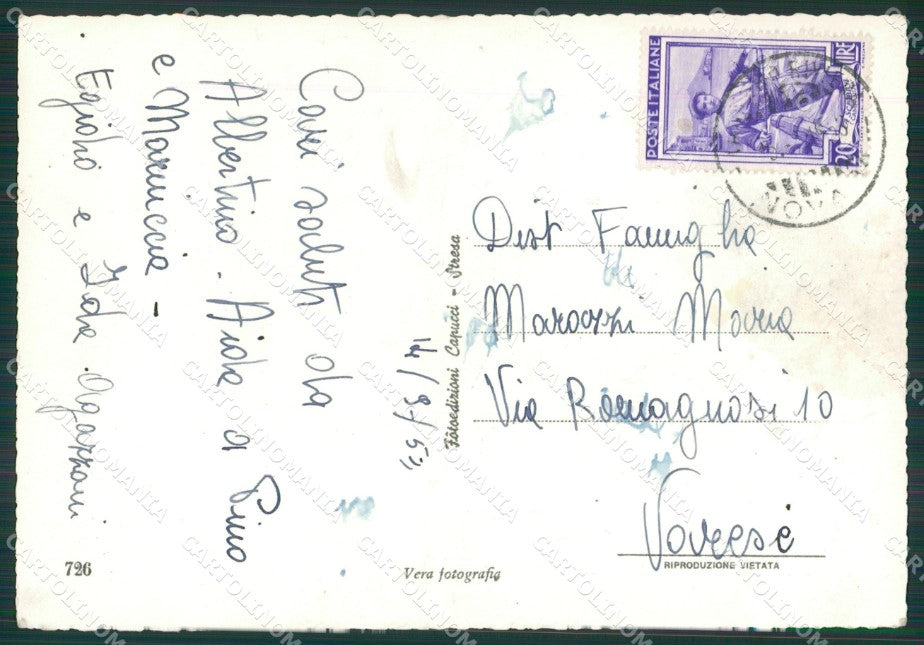 Cari saluti da
Albertino. Aida di Pino
e Mariuccia -
Egidio e Ida Agazzani
14/9/53
726
Vera fotografia
Fotoedizioni Capucci - Stresa
POSTE ITALIANE
20 LIRE
NOVA
Dist Famiglia
Marozzi Maria
Via Romagnosi 10
Varese
RIPRODUZIONE VIETATA
CARTOLINOMANIA